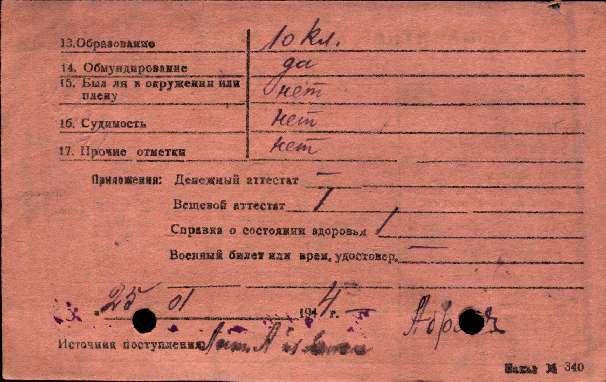 13. Образование 10 кл.
14. Обмундирование да
15. Был ли в окружении или
плену нет
16. Судимость нет
17. Прочие отметки нет
Приложения: Денежный аттестат —
Вещевой аттестат 1
Справка о состоянии здоровья 1
Военный билет или врем. удостовер. —
25 01 1944 г.
Источник поступления
Наказ № 340